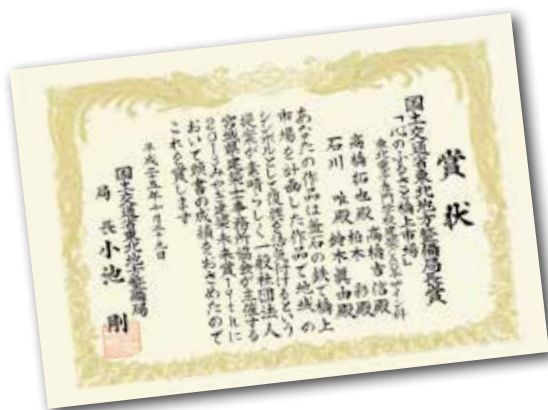 賞状
国土交通省東北地方整備局長賞
「心のふるさと橋上市場」
高橋拓也殿 高橋吉信殿
柏木 彩殿
石川 唯殿 鈴木眞由殿
あなたの作品は釜石の鉄で橋上
市場を計画した作品で地域の
シンボルとして復興を後押けるという
提案が素晴らしく一般社団法人
宮城県建築士事務所協会が主催する
2013みやぎ建築未来賞19thに
おいて頭書の成績をおさめたので
これを賞します
平成二十五年十月二十九日
国土交通省東北地方整備局
局長 小池 剛